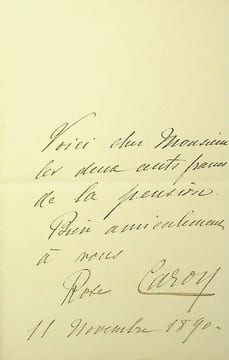 Voici cher Monsieur
les deux cents francs
de la pension.
Bien amicalement
à vous
Rose Caron
11 Novembre 1890-